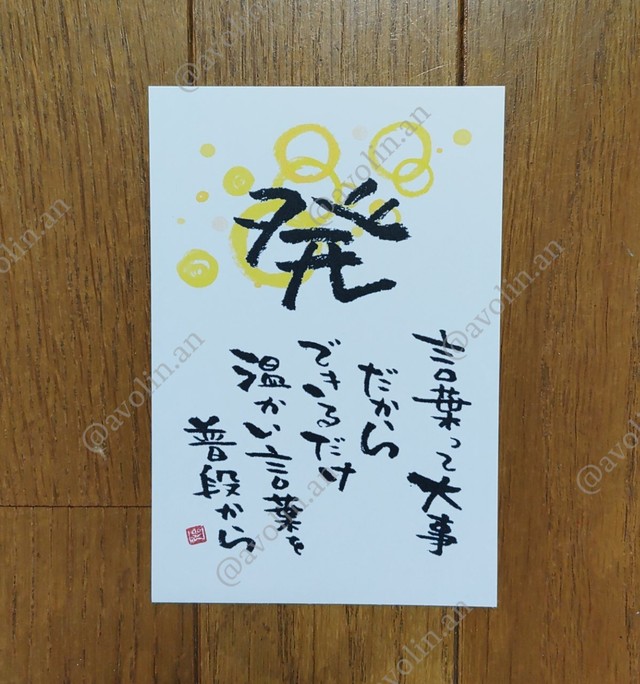 発
言葉って大事
だから
できるだけ
温かい言葉を
普段から
@avolin.an
@avolin.an
@avolin.an
@avolin.an
@avolin.an
@avolin.an
@avolin.an
@avolin.an